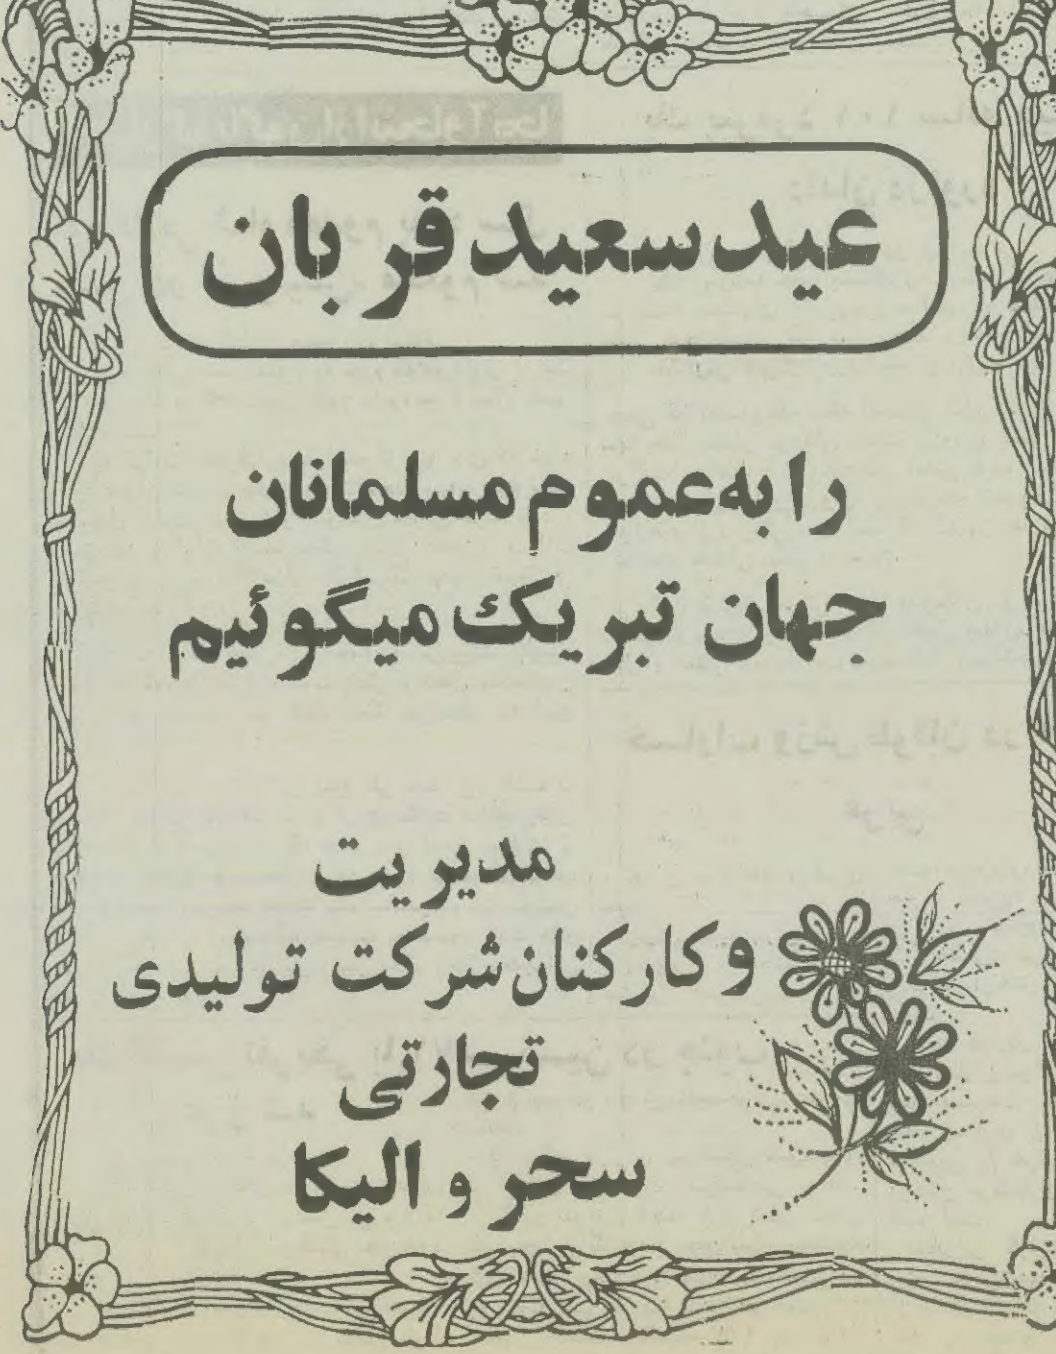 عید سعید قربان
را به عموم مسلمانان
جهان تبریک میگوئیم
مدیریت
و کارکنان شرکت تولیدی
تجارتی
سحر و الیکا